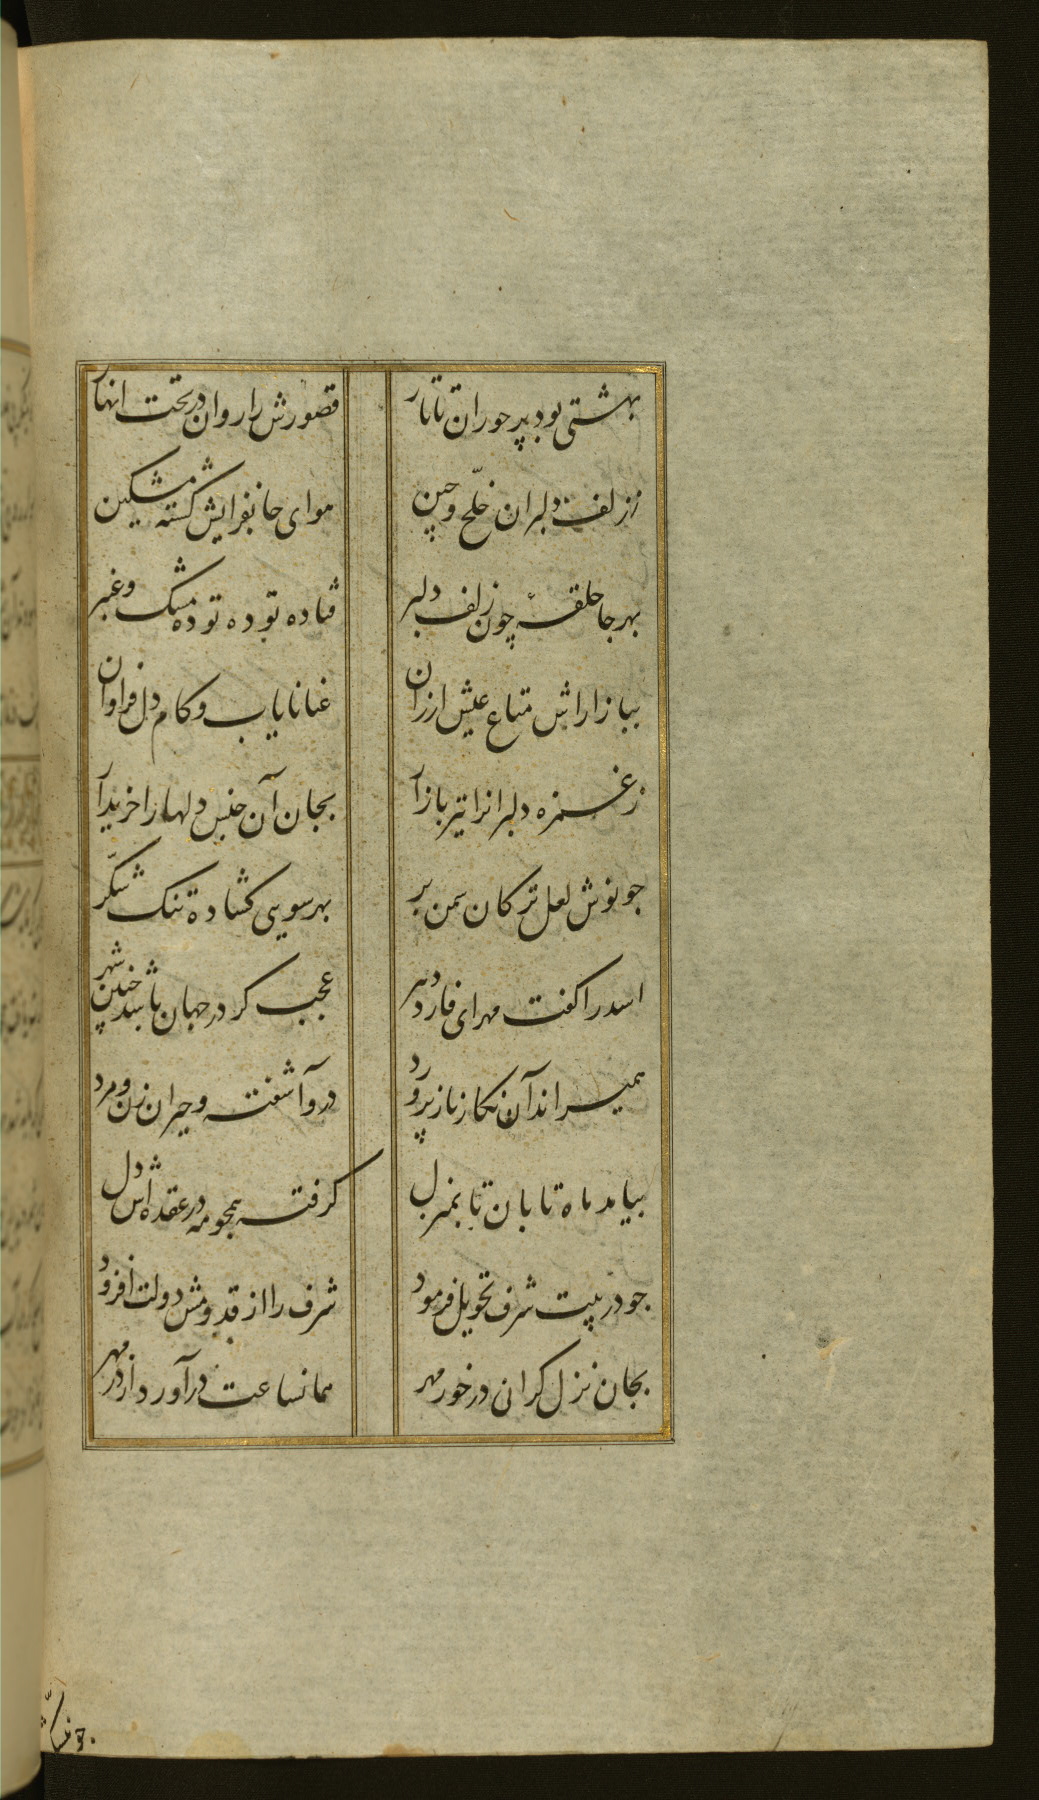 بهشتی بود پر حوران تاتار
قصورش را روان در تحت انهار
ز زلف دلبران خلّخ و چین
هوای جانفزایش گشته مشکین
بهر جا حلقهٔ چون زلف دلبر
فتاده توده توده مشک و عنبر
ببازاراش متاع عیش ارزان
غنا نایاب و کام دل فراوان
ز غمزه دلبرانرا تیر بازار
بجان آن جنس دلها را خریدار
چو نوش لعل ترکان سمن بر
بهر سویی کشاده تنک شکّر
اسد را کفت مهرای فارد دهر
عجب کر در جهان باشد چنین شهر
همیراند آن نکار ناز پرورد
درو آشفته و حیران زن و مرد
بیامد ماه تابان تا بمنزل
کرفته همچو مه در عقده اش دل
چو در بیت شرف تحویل فرمود
شرف را از قدومش دولت افزود
بجان نزل کرانی در خور مهر
همانساعت درآورد از در مهر